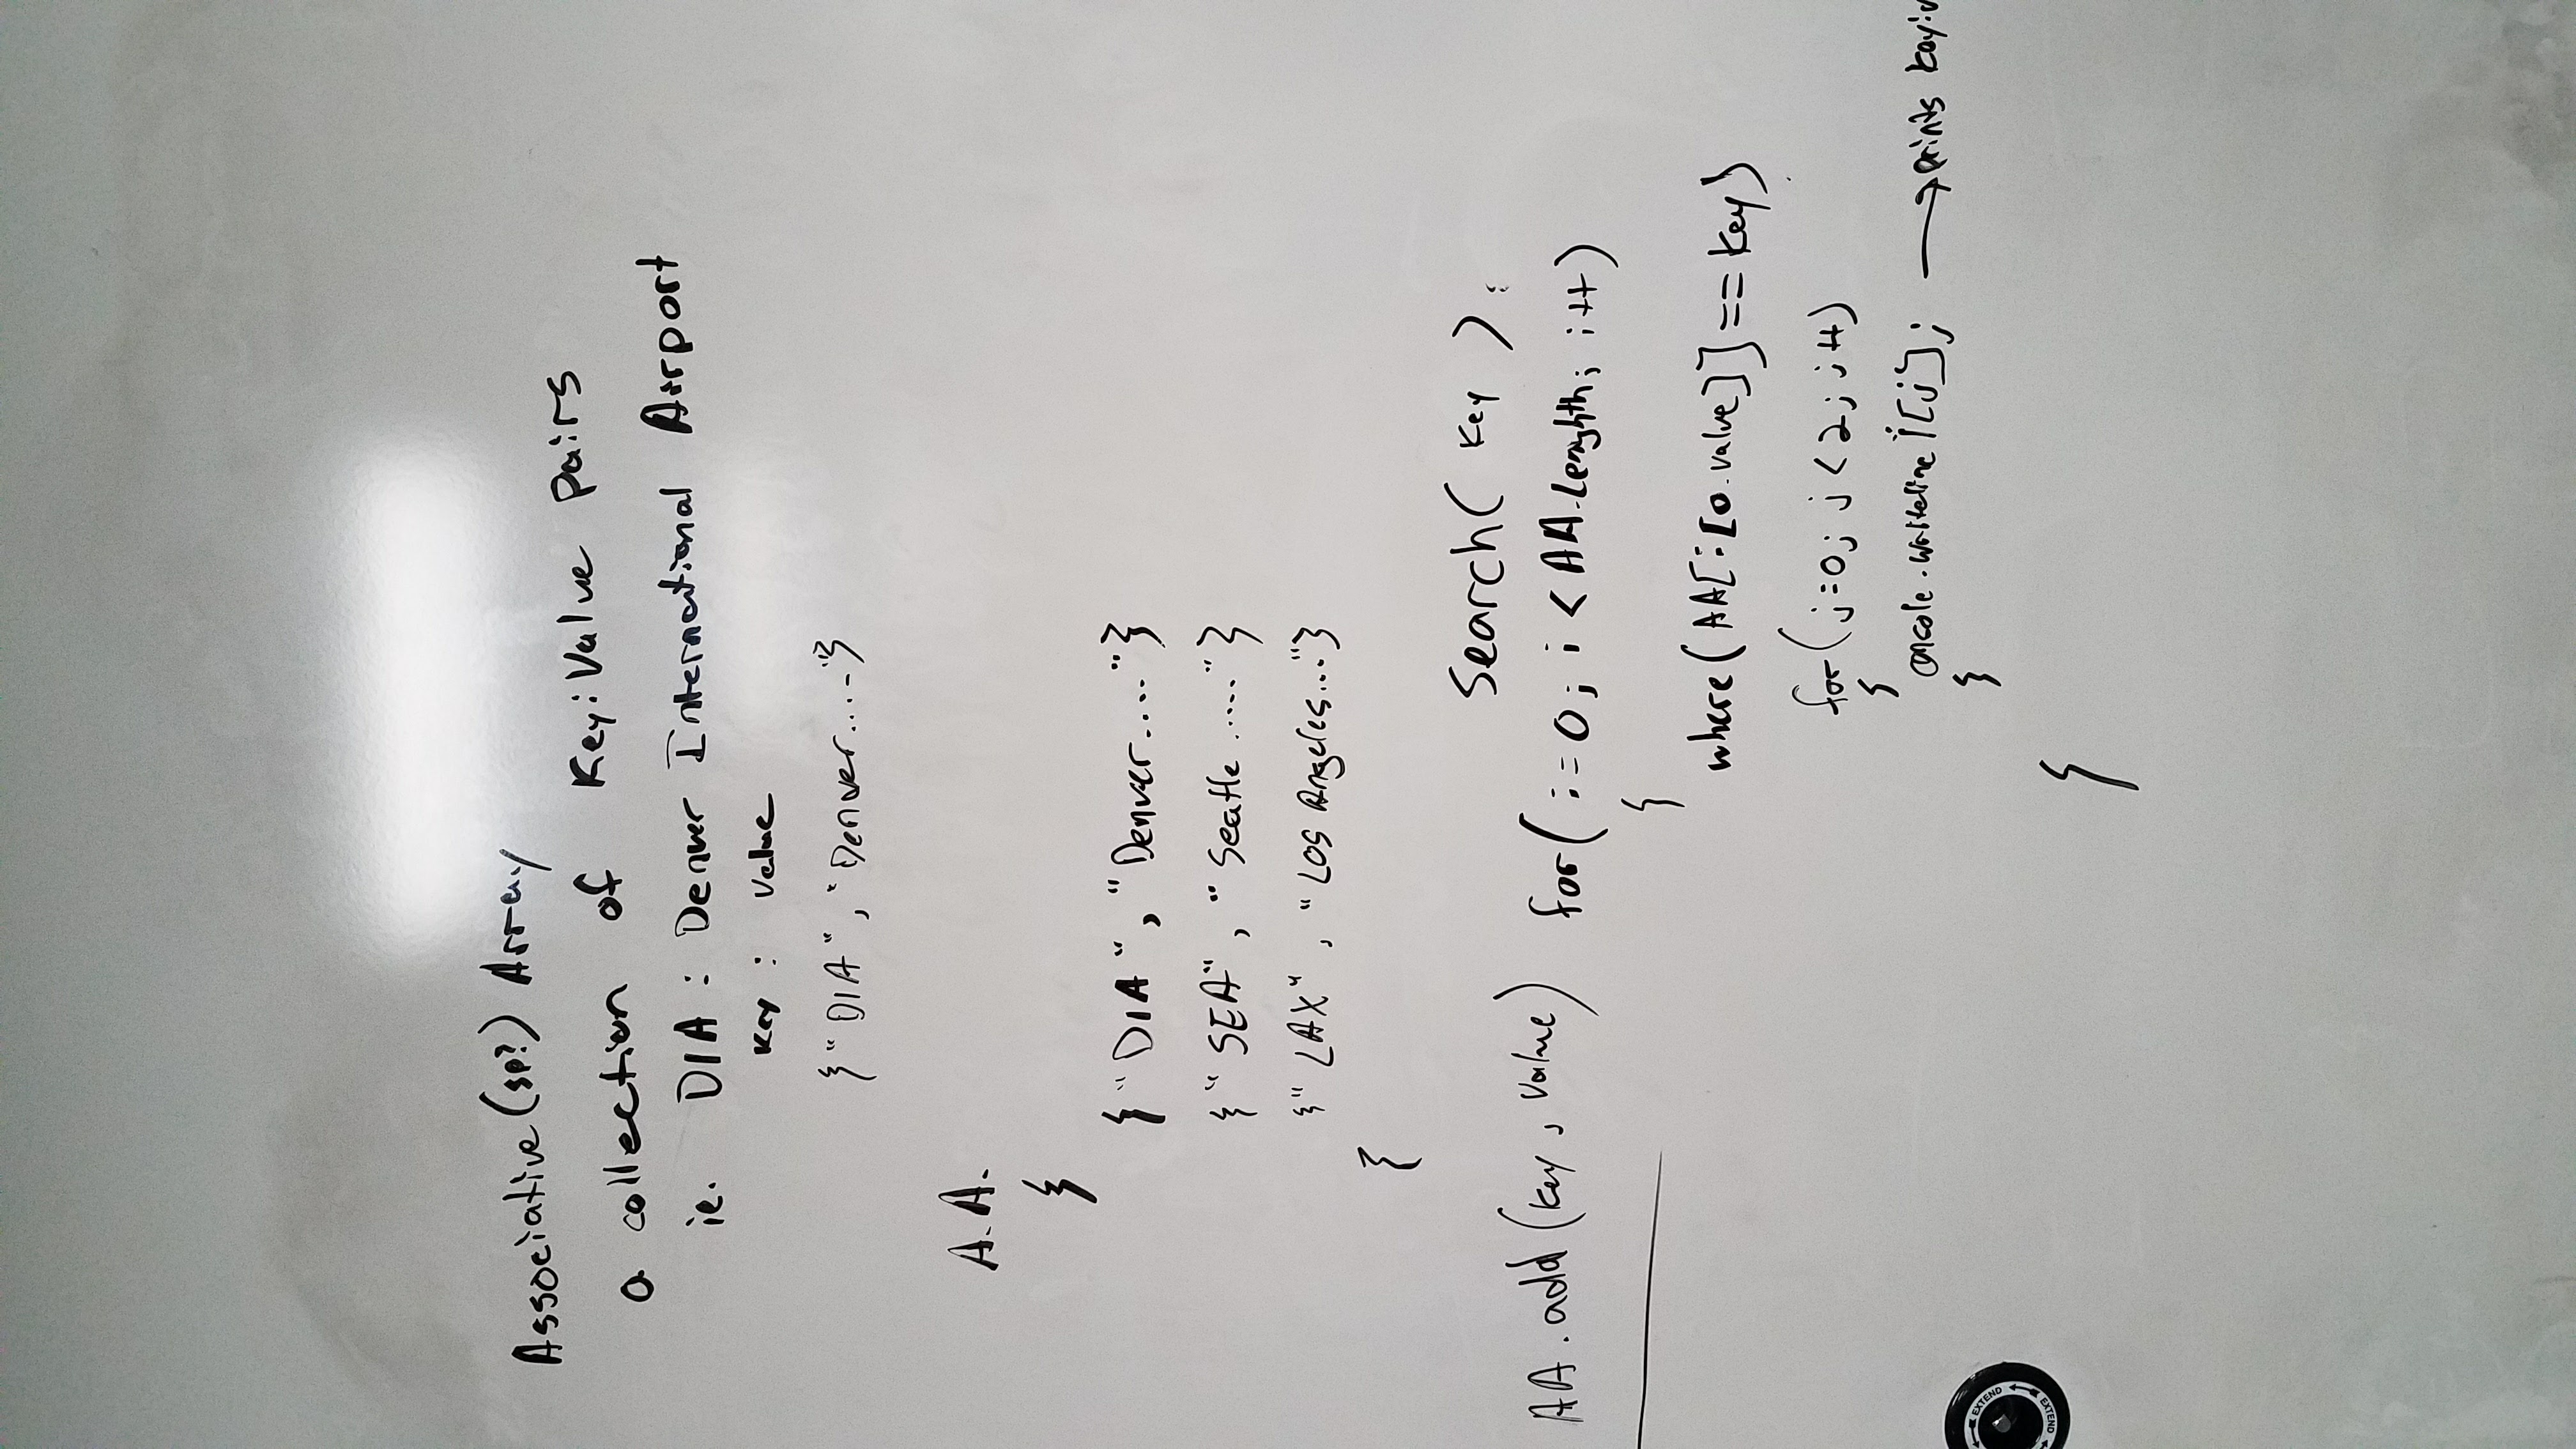 Associative (sp?) Array
a collection of Key:Value pairs
ie. DIA : Denver International Airport
key : value
{"DIA", "Denver....-"}
A.A.
{
{"DIA", "Denver...."}
{"SEA", "Seattle ....."}
{"LAX", "Los Angeles..."}
}
Search( key ):
AA.add(key, value)
for( i=0; i < AA.Lenghth; i++)
{
where(AA[i[0.value]] == key)
for(j=0; j<2; j++)
{
console.writeline i[j]; → prints key:v
}
}
EXTEND
EXTEND